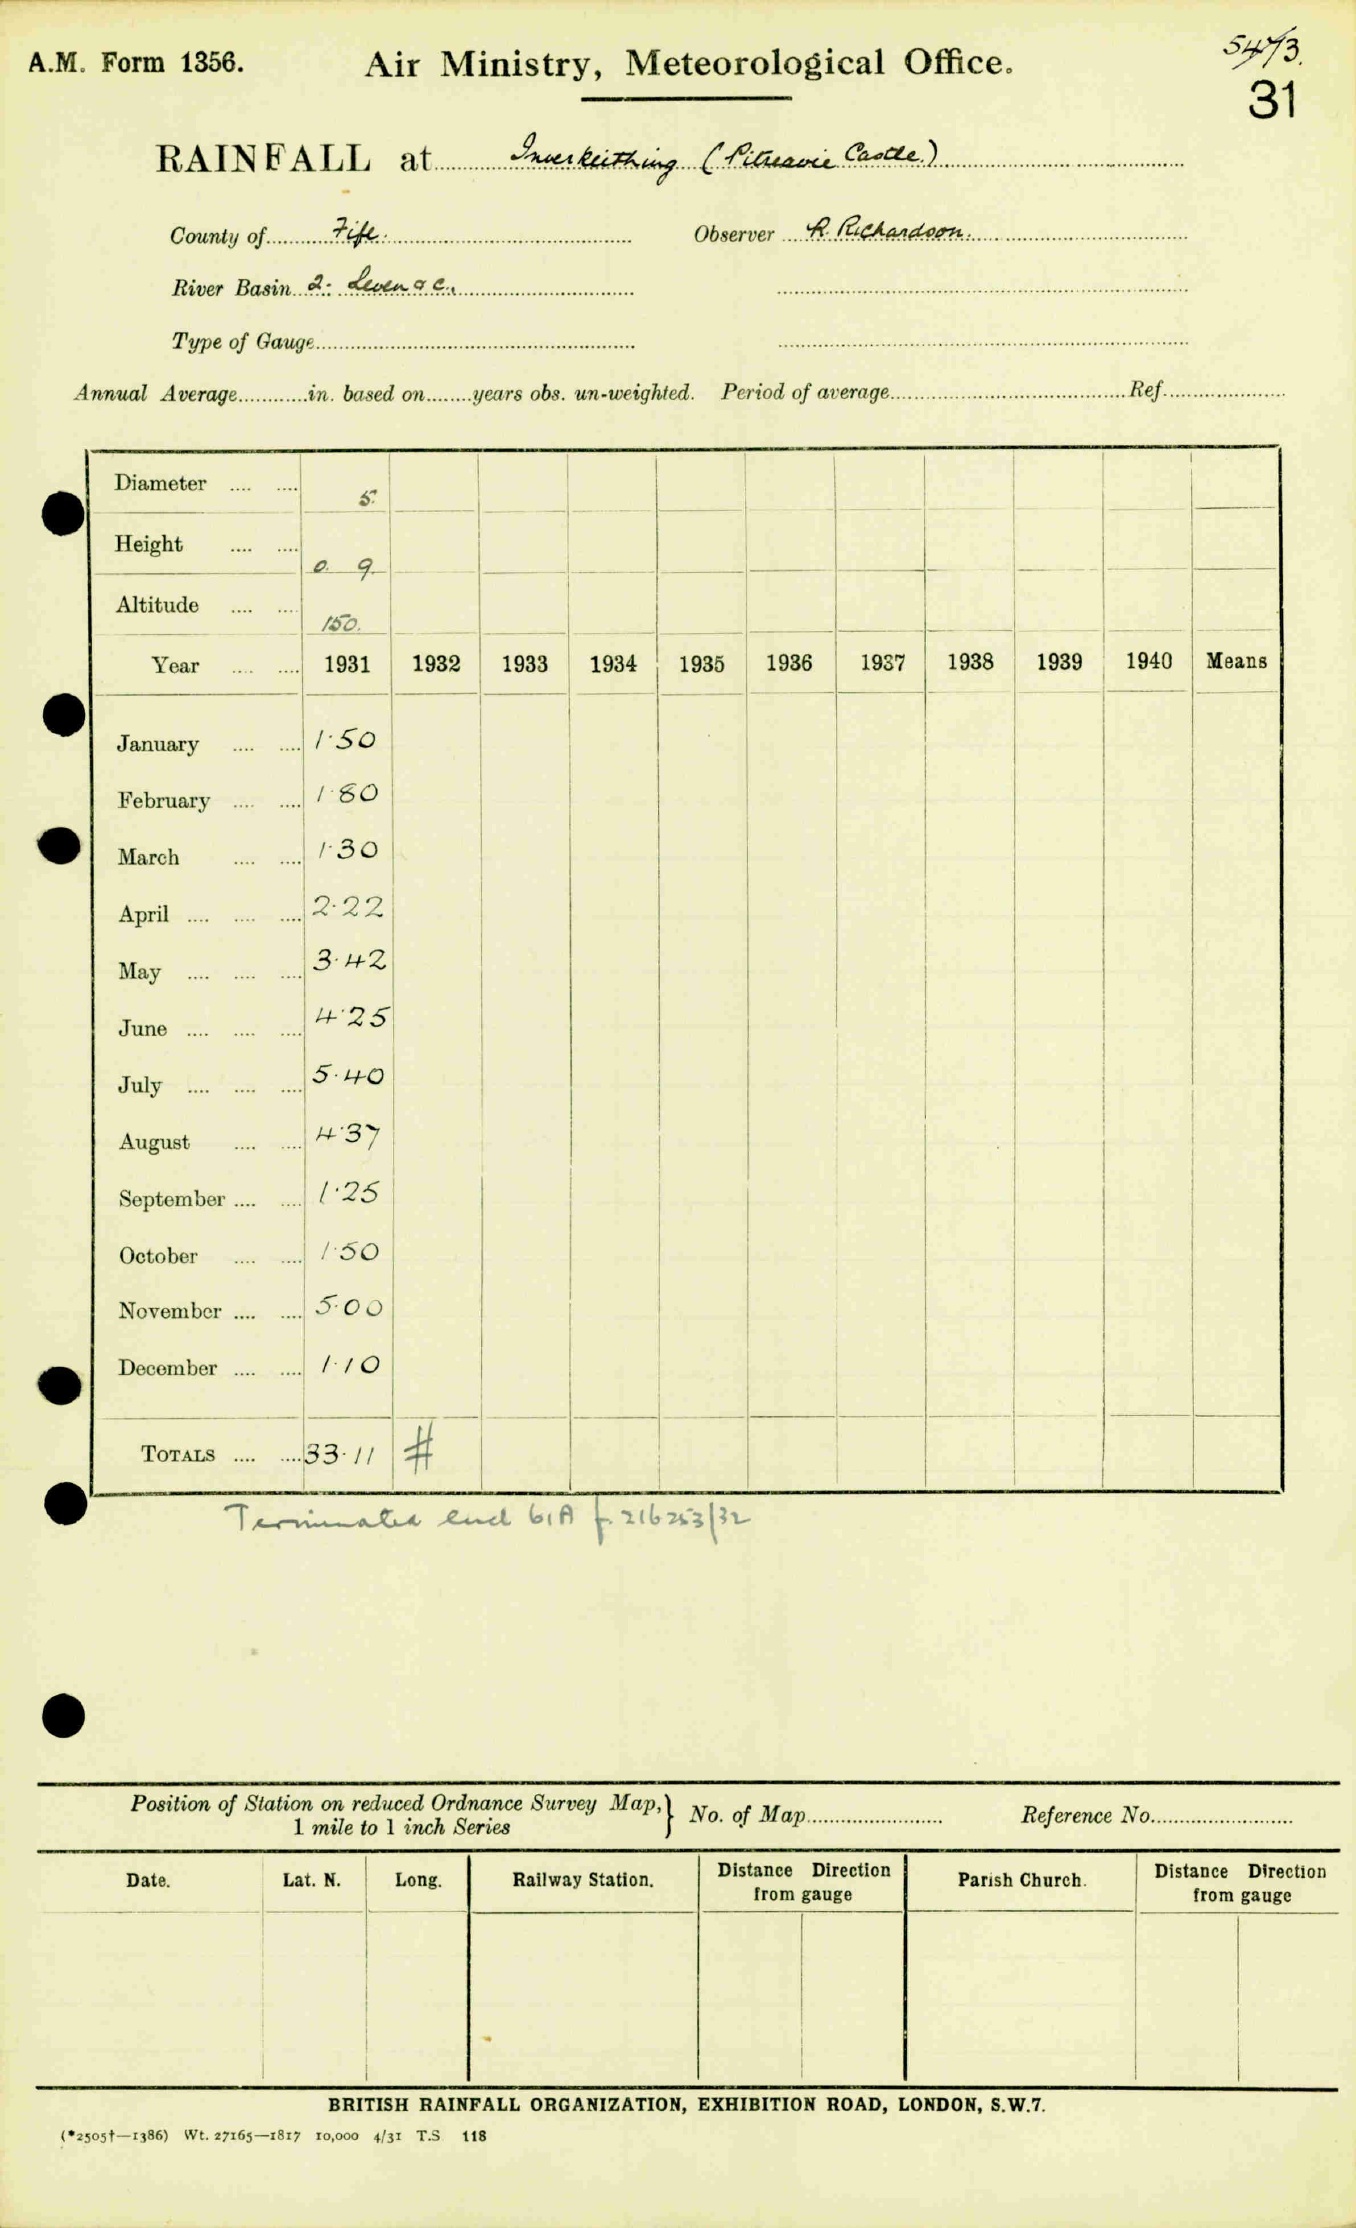 A.M. Form 1356.
Air Ministry, Meteorological Office.
54/13.
31
RAINFALL at Inverkeithing (Pitreavie Castle.)
County of Fife.
Observer R. Richardson.
River Basin 2: Leven & c.
Type of Gauge
Annual Average in. based on years obs. un-weighted. Period of average Ref.
Diameter 5.
Height 0. 9.
Altitude 150.
Year 1931 1932 1933 1934 1935 1936 1937 1938 1939 1940 Means
January 1·50
February 1·80
March 1·30
April 2·22
May 3·42
June 4·25
July 5·40
August 4·37
September 1·25
October 1·50
November 5·00
December 1·10
TOTALS 33·11 #
Terminated 216253/32
Position of Station on reduced Ordnance Survey Map,} No. of Map Reference No.
1 mile to 1 inch Series
Date. Lat. N. Long. Railway Station. Distance Direction from gauge Parish Church. Distance Direction from gauge
BRITISH RAINFALL ORGANIZATION, EXHIBITION ROAD, LONDON, S.W.7.
(*2505†—1386) Wt. 27165—1817 10,000 4/31 T.S. 118